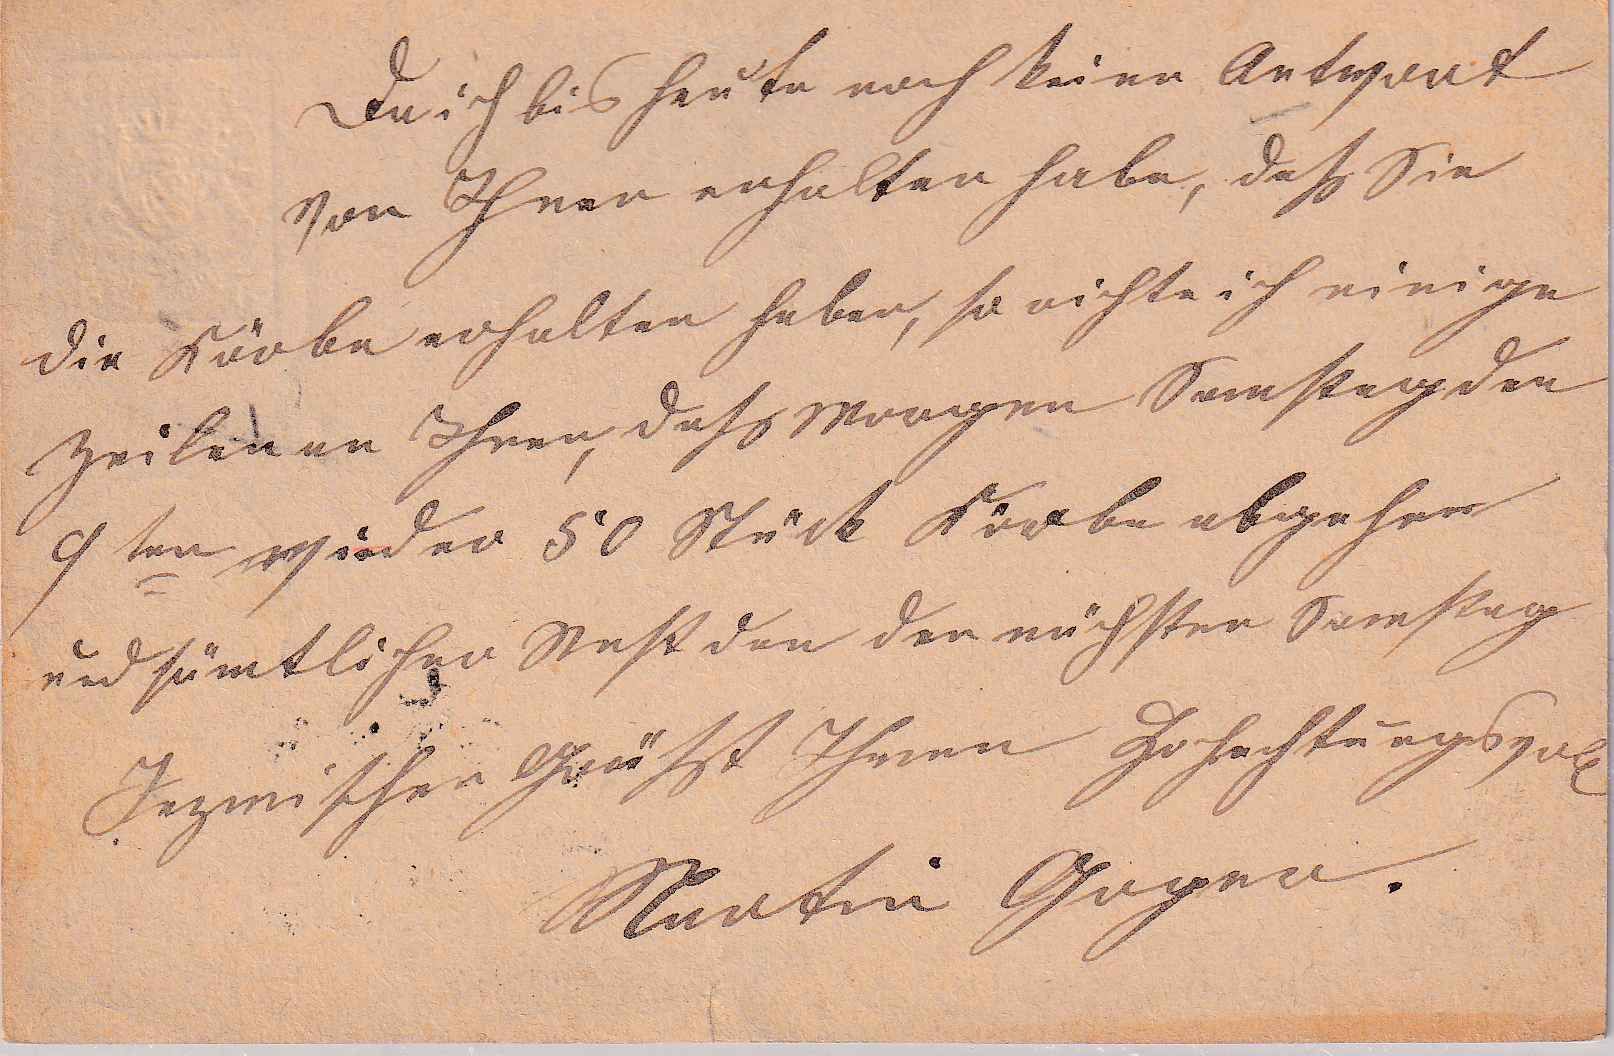 Da ich bis heute noch keine Antwort
von Ihnen erhalten habe, daß Sie
die Körbe erhalten haben, so richte ich einige
Zeilen an Ihnen, daß morgen Samstag den
9ten wieder 50 Stück Körbe abgehen
und sämtlicher Rest den nächsten Samstag
Inzwischen Grüßt Ihnen Hochachtungsvoll
Martin